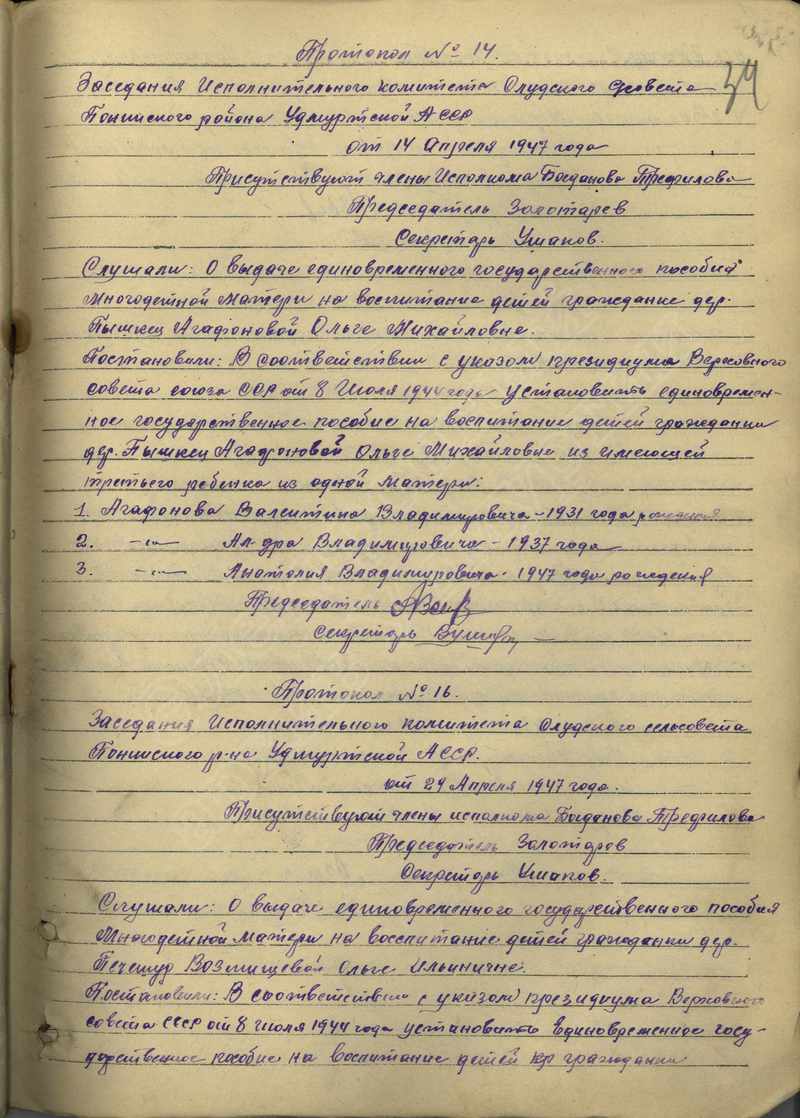 34
Протокол № 14.
Заседания Исполнительного комитета Олудского с/совета
Понинского района Удмуртской АССР
от 14 Апреля 1947 года
Присутствуют члены Исполкома Богданова Трефилова
Председатель Золотарев
Секретарь Ушаков.
Слушали: О выдаче единовременного государственного пособия
Многодетной матери на воспитание детей граждание дер.
Пышкец Агафоновой Ольге Михайловне.
Постановили: В соответствии с указом президиума Верховного
совета союза ССР от 8 Июля 1944 года установить единовремен-
ное государственное пособие на воспитание детей гражданки
дер. Пышкец Агафоновой Ольге Михайловне из имеющей
третьего ребенка из одной матери:
1. Агафонова Валентина Владимировича - 1931 года рождения
2. -"- Ал-дра Владимировича - 1937 года
3. -"- Анатолия Владимировича - 1947 года рождения
Председатель
Секретарь
Протокол № 16.
Заседания Исполнительного комитета Олудского сельсовета
Понинского р-на Удмуртской АССР.
от 29 Апреля 1947 года.
Присутствуют члены исполкома Богданова Трефилова
Председатель Золотарев
Секретарь Ушаков.
Слушали: О выдаче единовременного государственного пособия
Многодетной матери на восспитание детей гражданки дер.
Печешур Возмищевой Ольге Ильиничне.
Постановили: В соответствии с указом президиума Верховного
совета СССР от 8 июля 1944 года установить Единовременное госу-
дарственное пособие на воспитание детей гр гражданки